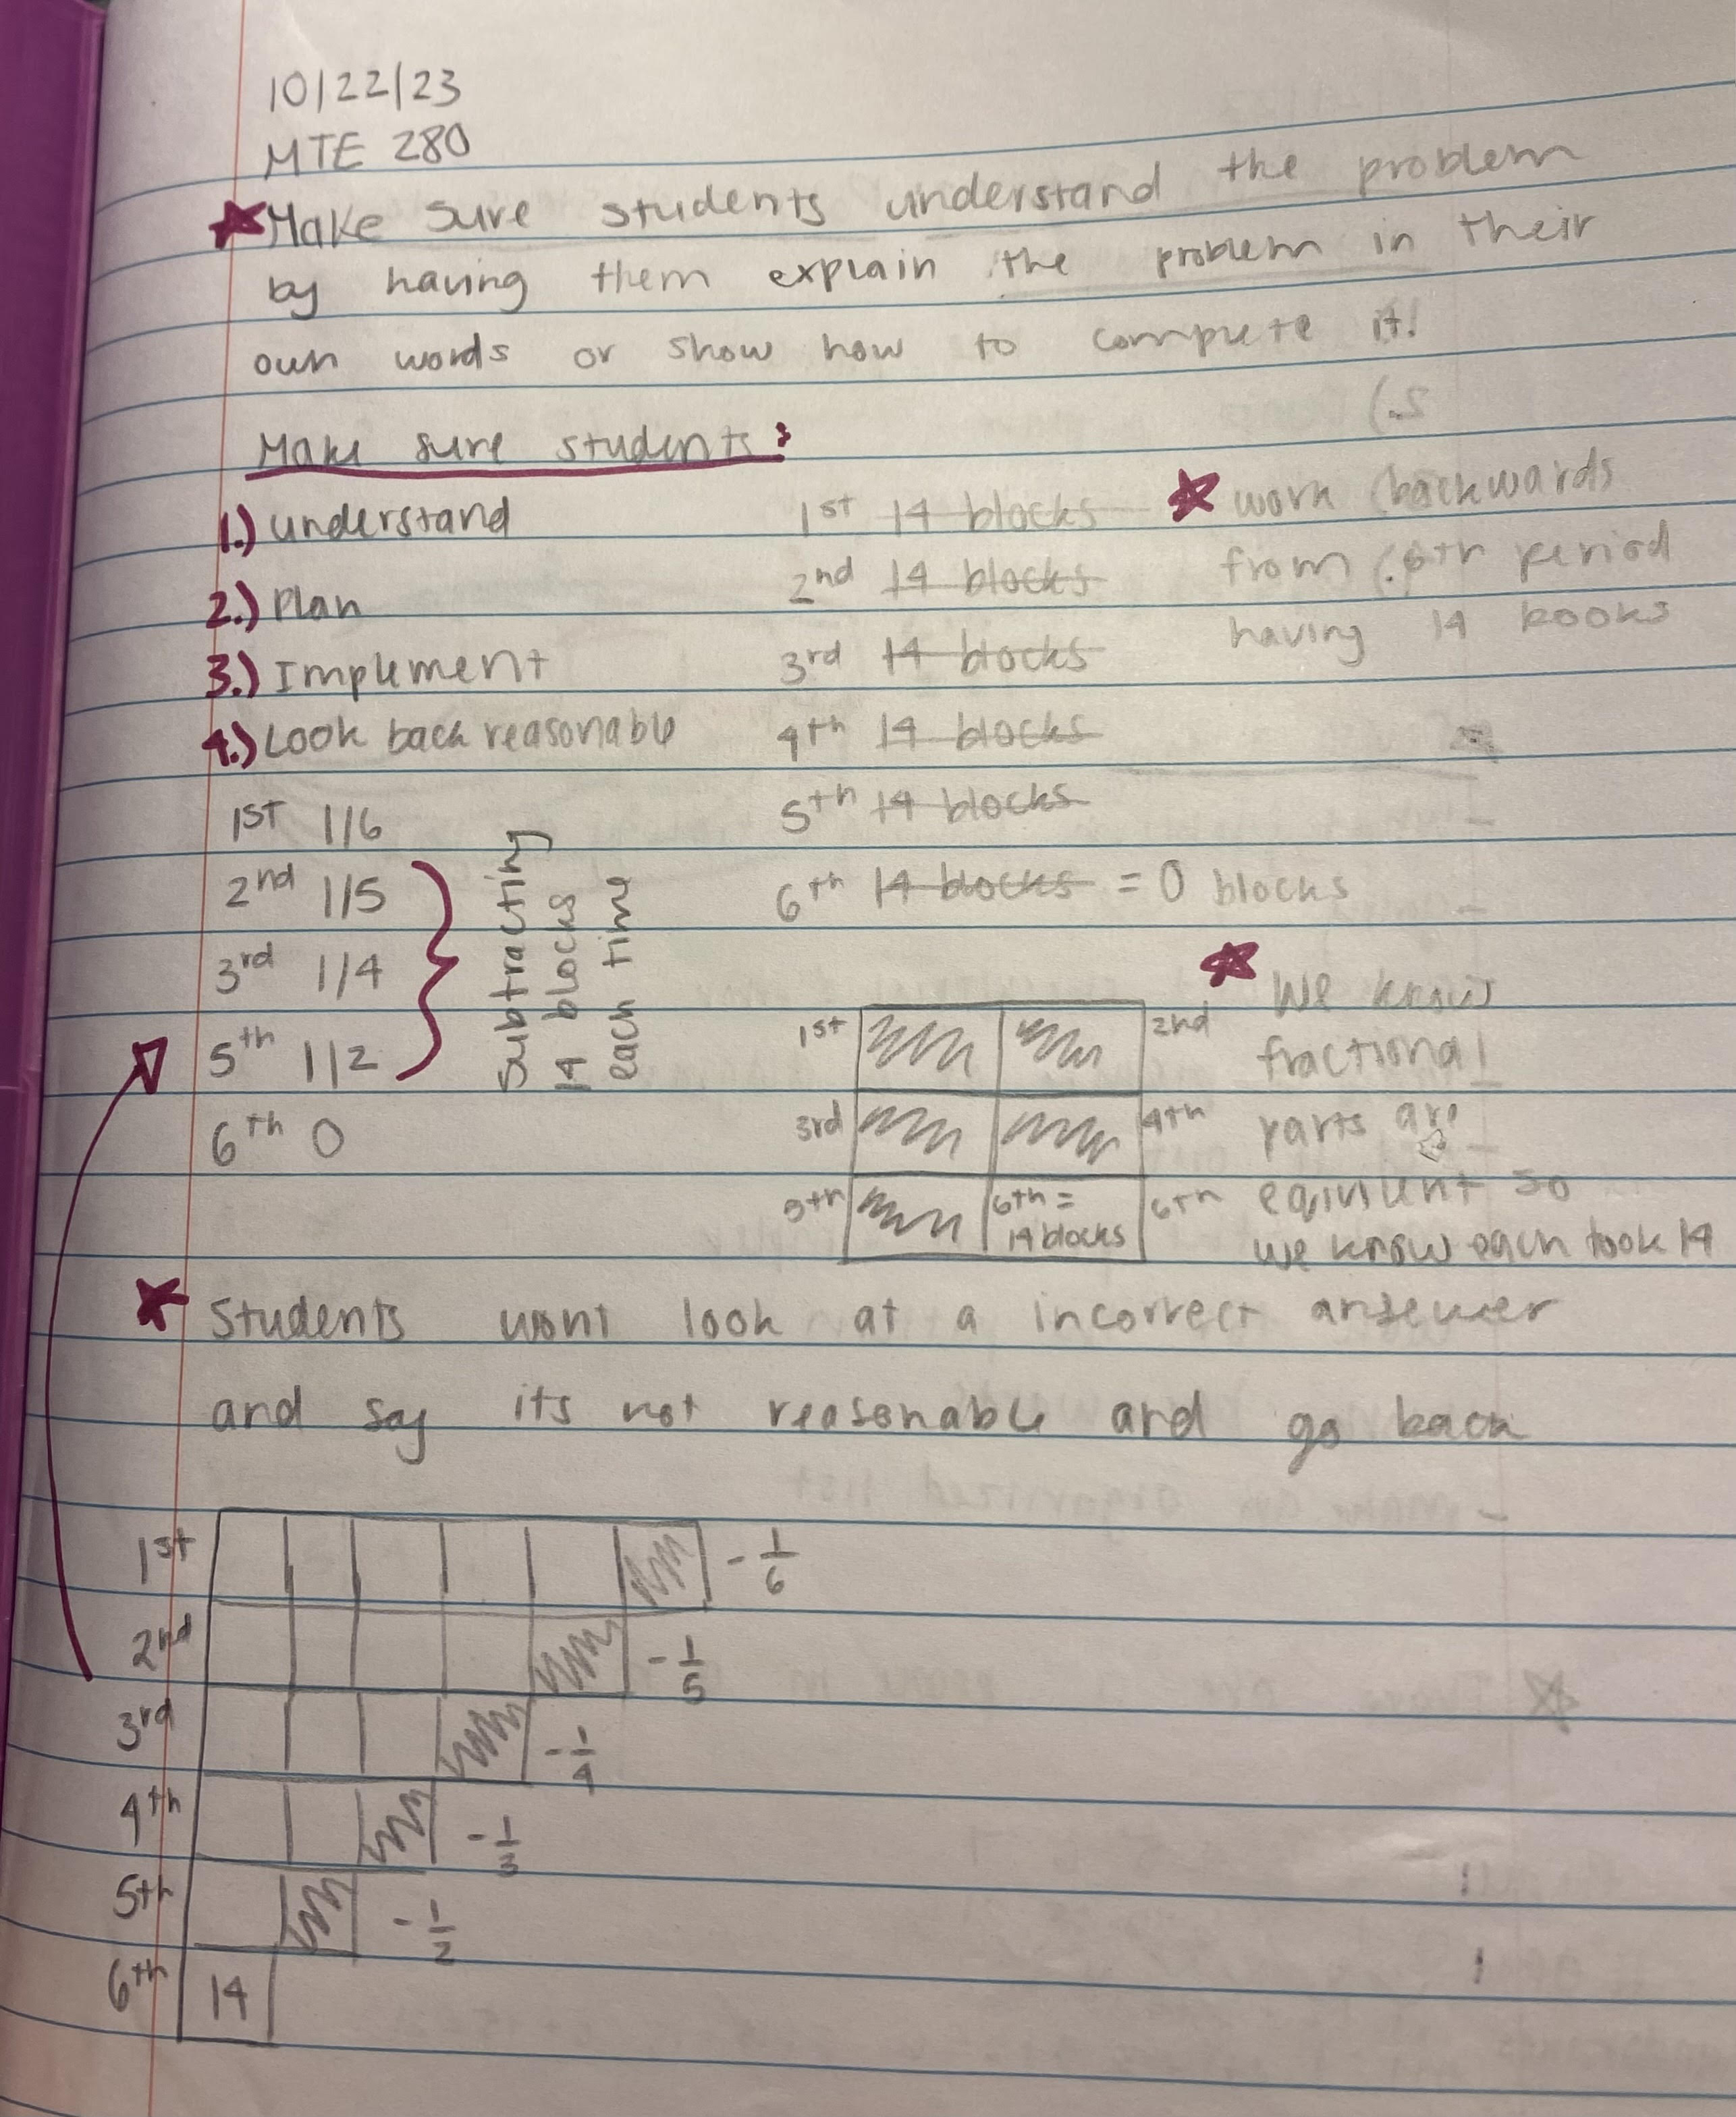 10/22/23
MTE 280
Make sure students understand the problem
by having them explain the problem in their
own words or show how to complete it!
Make sure students:
1.) understand
2.) Plan
3.) Implement
4.) Look back reasonable
1st 14 blocks
2nd 14 blocks
3rd 14 blocks
4th 14 blocks
5th 14 blocks
6th 14 blocks = 0 blocks
work backwards
from 6th period
having 14 books
1ST 1/6
2nd 1/5
3rd 1/4
5th 1/2
6th 0
Subtracting
14 blocks
each time
1st 2nd
3rd 4th
5th 6th = 6th
14 blocks
We know
fractional
parts are
eqivilent so
we know each took 14
Students wont look at a incorrect answer
and say its not reasonable and go back
1st - 1/6
2nd - 1/5
3rd - 1/4
4th - 1/3
5th - 1/2
6th 14
- make an organized list